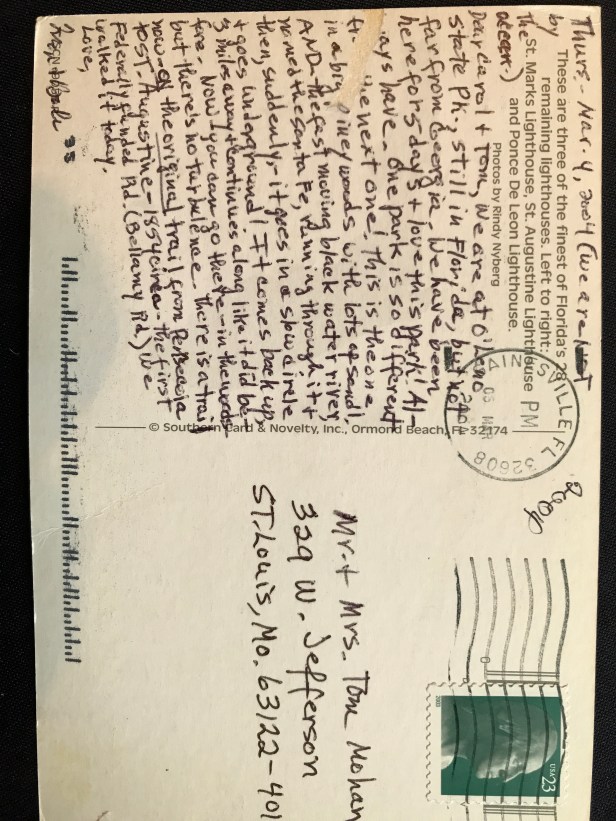 Thurs - Mar. 4, 2004 (We are
by
the
ocean.)
These are three of the finest of Florida's 28
remaining lighthouses. Left to right:
St. Marks Lighthouse, St. Augustine Lighthouse
and Ponce De Leon Lighthouse.
Photos by Rindy Nyberg
Dear Carol + Tom, We are at O'Leno
state Pk., still in Florida, but not
far from Georgia. We have been
here for 5 days + love this park! Al-
ways have. One park is so different
the next one! This is the one
in a big piney woods with lots of sand!
AND - the fast moving black water river
named the Santa Fe, running through it +
then, suddenly - it goes in a slow circle
+ goes underground! It comes back up
3 miles away + continues along like it did be-
fore. Now you can go there - in the woods
but there's no turbulence. There is a trail
now - of the original trail from Pensacola
to St. Augustine - 1854 circa - the first
Federally funded Rd. (Bellamy Rd.) We
walked it today.
Love,
© Southern Card & Novelty, Inc., Ormond Beach, FL 32174
GAINESVILLE FL
PM
05 MAR
32608
USA 23
2003
Mr. + Mrs. Tom Mohan
329 W. Jefferson
ST. Louis, Mo. 63122-401